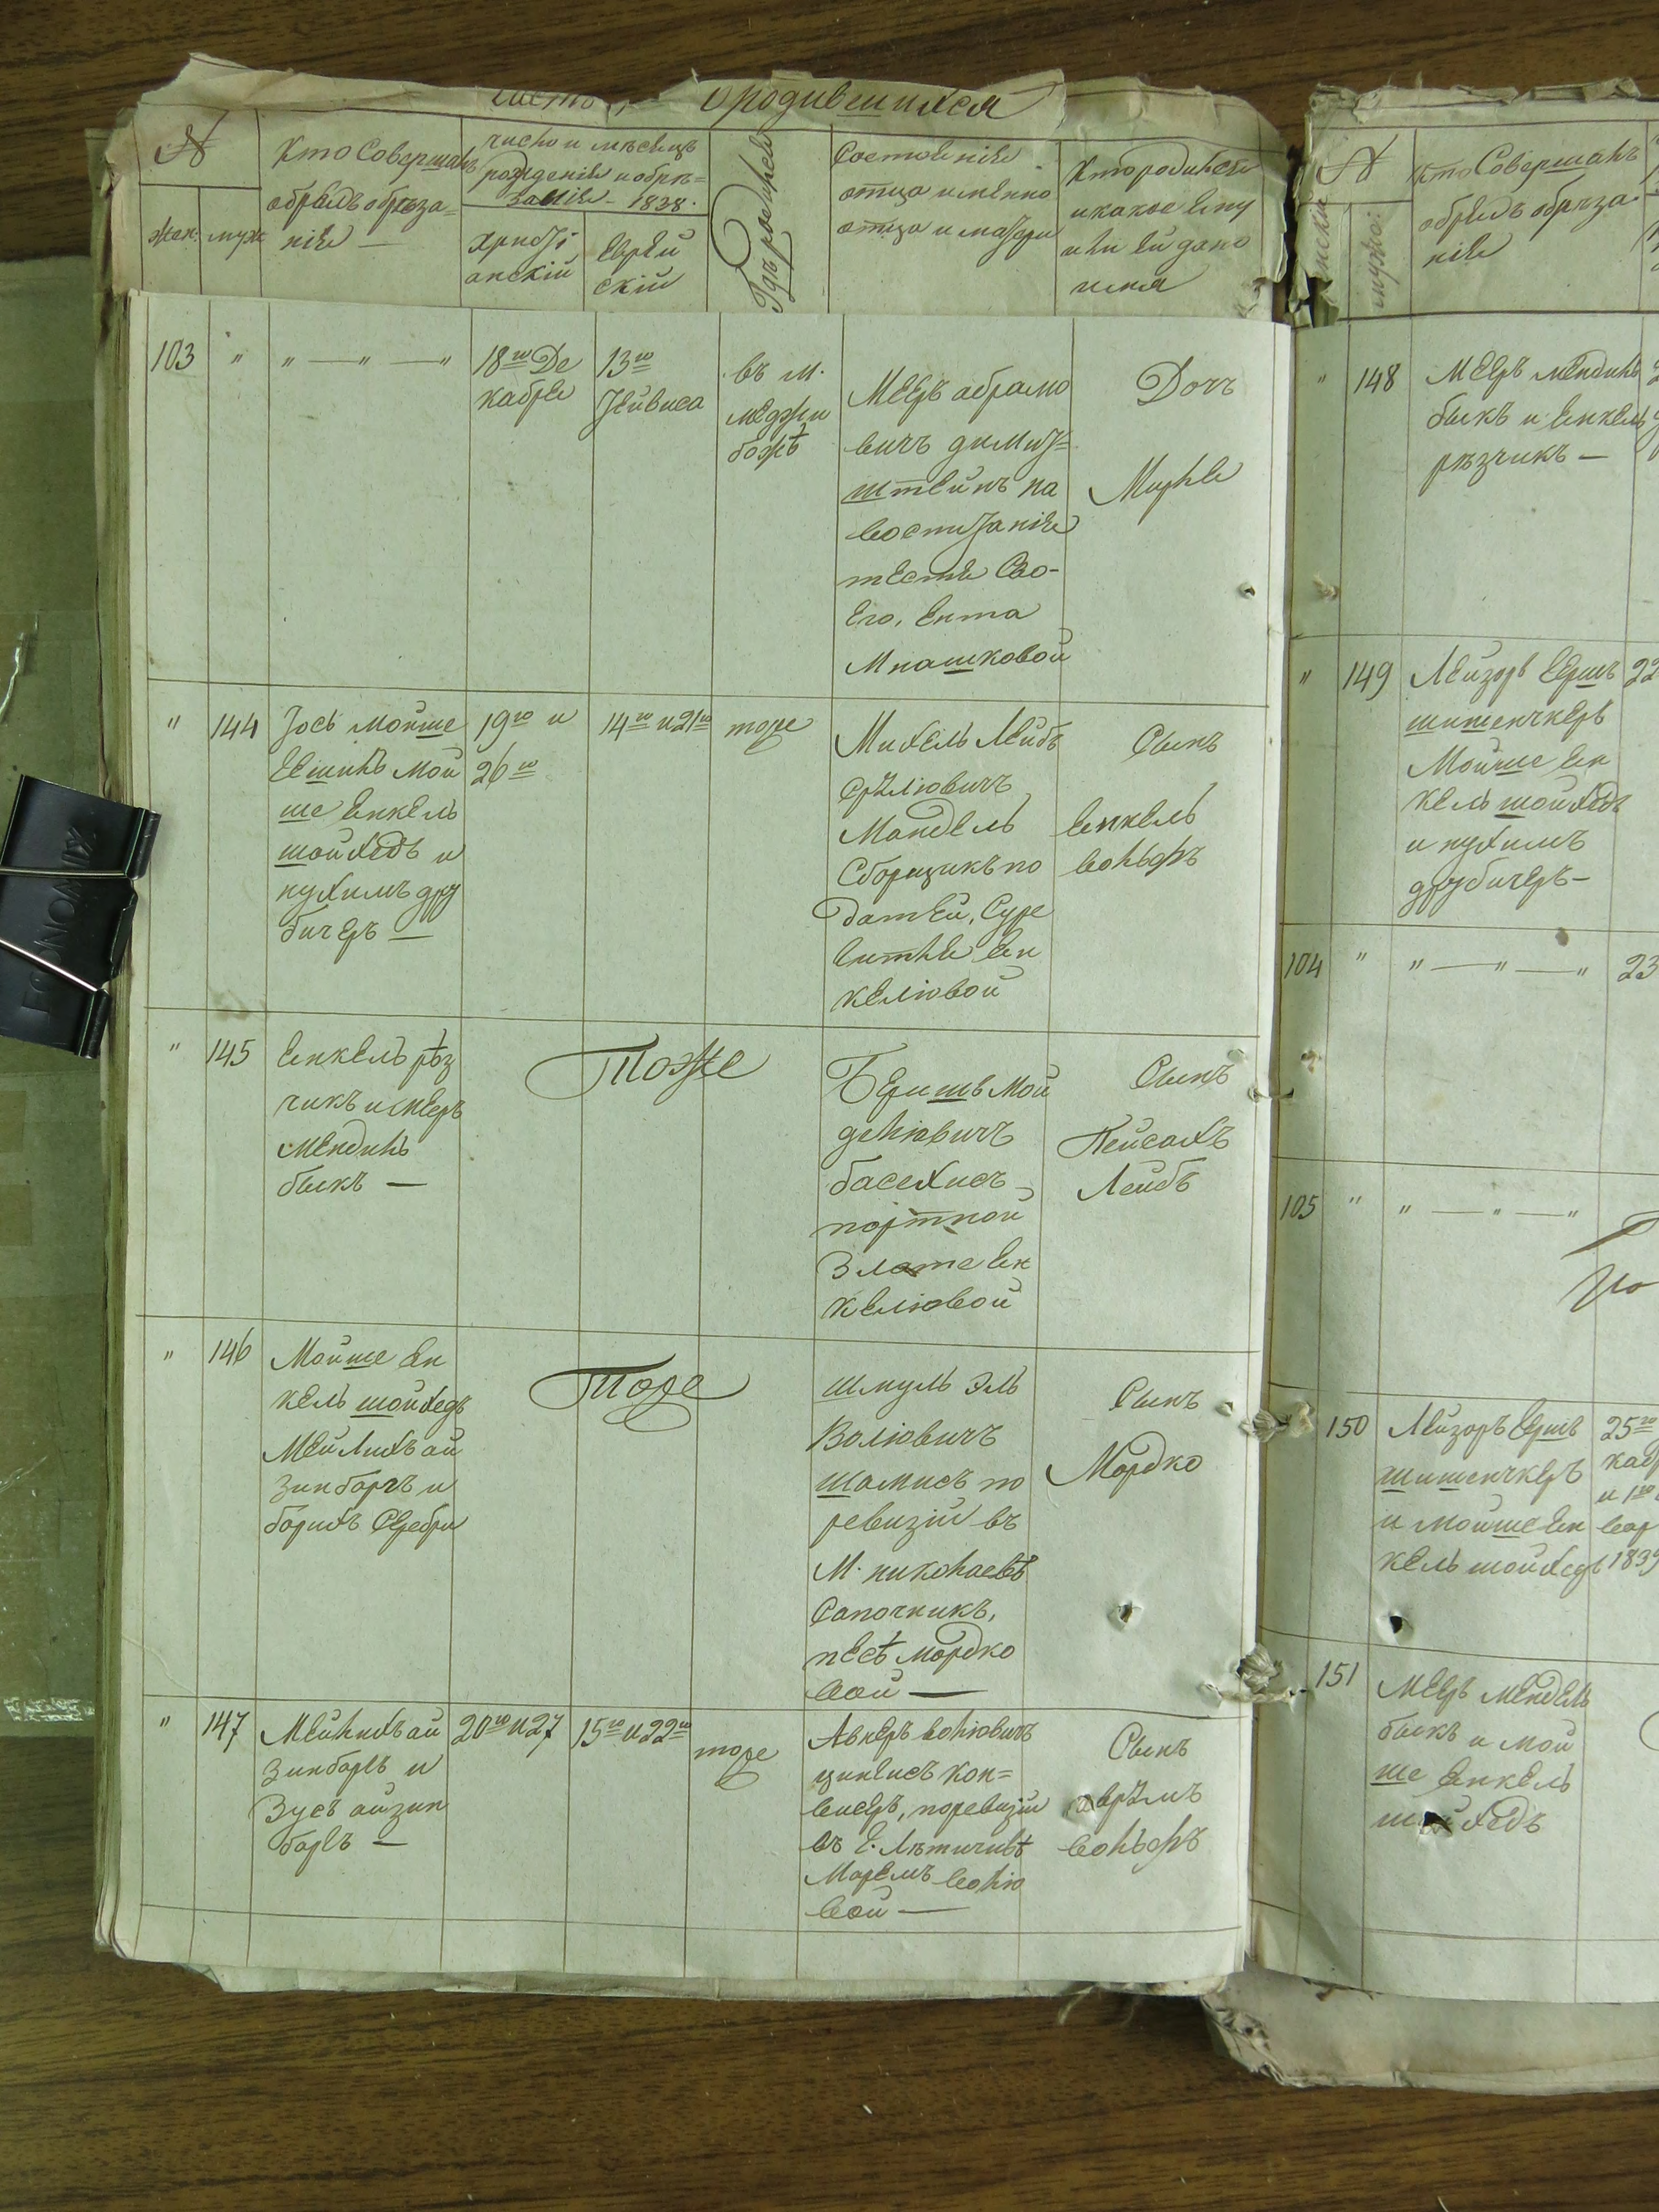 о родившихся
№
Кто Совершалъ
обрядъ обрѣза=
нія —
жен.
муж
число и мѣсяцъ
рожденія и обрѣ=
занія - 1838.
христі
анскій
еврей
скій
Гдѣ родился
Состояніе
отца имянно
отца и матери
Кто родился
и какое ему
или ей дано
имя
103 " " — " — "
18го Де
кабря
13го
Тейвиса
въ м.
Меджи
божѣ
Мееръ абрамо
вичъ димит=
штейнъ на
воспитаніи
тестя Сво-
его, Ента
Мнашковой
Дочь
Мирля
" 144
Іось мойше
Евшикъ Мой
ше Енкель
шойхедъ и
нухимъ дру
бичеръ —
19го и
26го
14го и 21го
тоже
Михель Лейбъ
срулювичъ
Мандель
Сборщикъ по
датей, Суре
витля Ен
келювой
Сынъ
Енкель
вольфъ
" 145
Енкель рѣз
чикъ и мееръ
Мендиль
быкъ —
Тоже
Беришъ Мой
делювичъ
басехисъ
портной
Злате Ен
келювой
Сынъ
Пейсахъ
Лейбъ
" 146
Мойше Ен
кель шойхедъ
Мейлихъ ай
зинбаргъ и
борихъ Серебри
Тоже
Шмуль Эль
Волювичъ
шамисъ по
ревизіи въ
М. николаевѣ
Сапочникъ,
песѣ мордко
вой —
Сынъ
Мордко
" 147
Мейлихъ ай
зинбаргъ и
Зусь айзин
баргъ —
20го и 27
15го и 22го
тоже
Авнеръ волювичъ
цинисъ кон=
висеръ, по ревизіи
въ г. Лѣтичивѣ
Маремъ волю
вой —
Сынъ
аврумъ
вольфъ
№
кто Совершалъ
обрядъ обрѣза-
нія
женски
мужс:
" 148
Мееръ мендиль
быкъ и Енкель
рѣзчикъ —
" 149
Лейзоръ Гершъ
шишенчкеръ
Мойше Ен
кель шойхедъ
и нухимъ
друбичеръ —
22
104 " " — " — "
23
105 " " — " — "
150
Лейзоръ Гершъ
шишенчкеръ
и мойше Ен
кель шойхедъ
25го
кабр
и 1го
вар
1839
151
Мееръ мендель
быкъ и мой
ше Енкель
шойхедъ
ECONOMIX